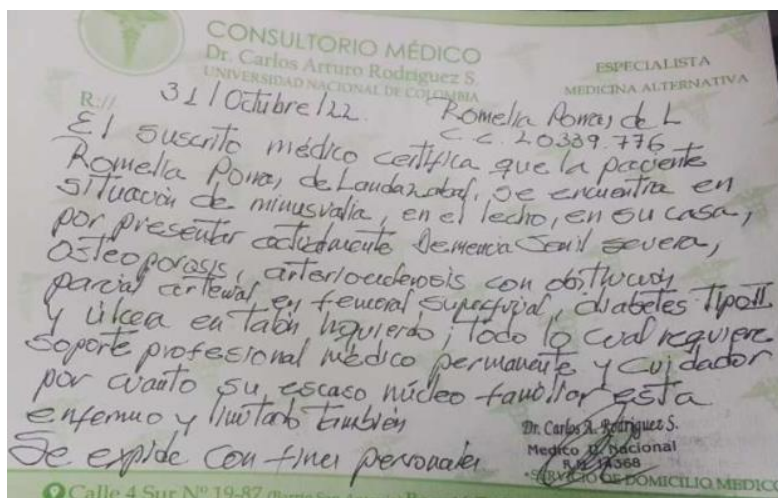 CONSULTORIO MÉDICO
Dr. Carlos Arturo Rodríguez S.
UNIVERSIDAD NACIONAL DE COLOMBIA
ESPECIALISTA
MEDICINA ALTERNATIVA
R://
31/Octubre/22.
Romelia Porras de L
C.C. 20339.776
El suscrito médico certifica que la paciente
Romelia Porras de Landazabal, se encuentra en
situación de minusvalia, en el lecho, en su casa,
por presentar actualmente Demencia Senil severa,
Osteoporosis, arterioesclerosis con obstrucción
parcial arterial en femoral superficial, diabetes Tipo II
y úlcera en talón izquierdo; Todo lo cual requiere
soporte profesional médico permanente y cuidador
por cuanto su escaso núcleo familiar esta
enfermo y limitado también
Se expide con fines personales
Dr. Carlos A. Rodríguez S.
Medico U. Nacional
R.M. 14368
SERVICIO DE DOMICILIO MEDICO
Calle 4 Sur Nº 19-87